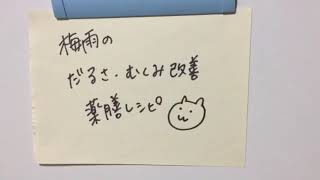 梅雨の
だるさ・むくみ改善
薬膳レシピ